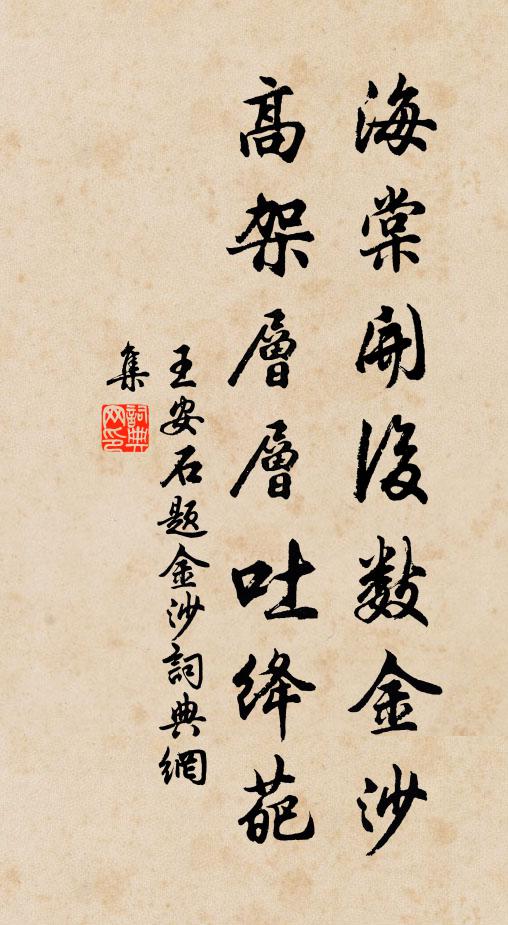 海棠開後數金沙
高架層層吐絳葩
王安石題金沙詞典網
集
詞典網印